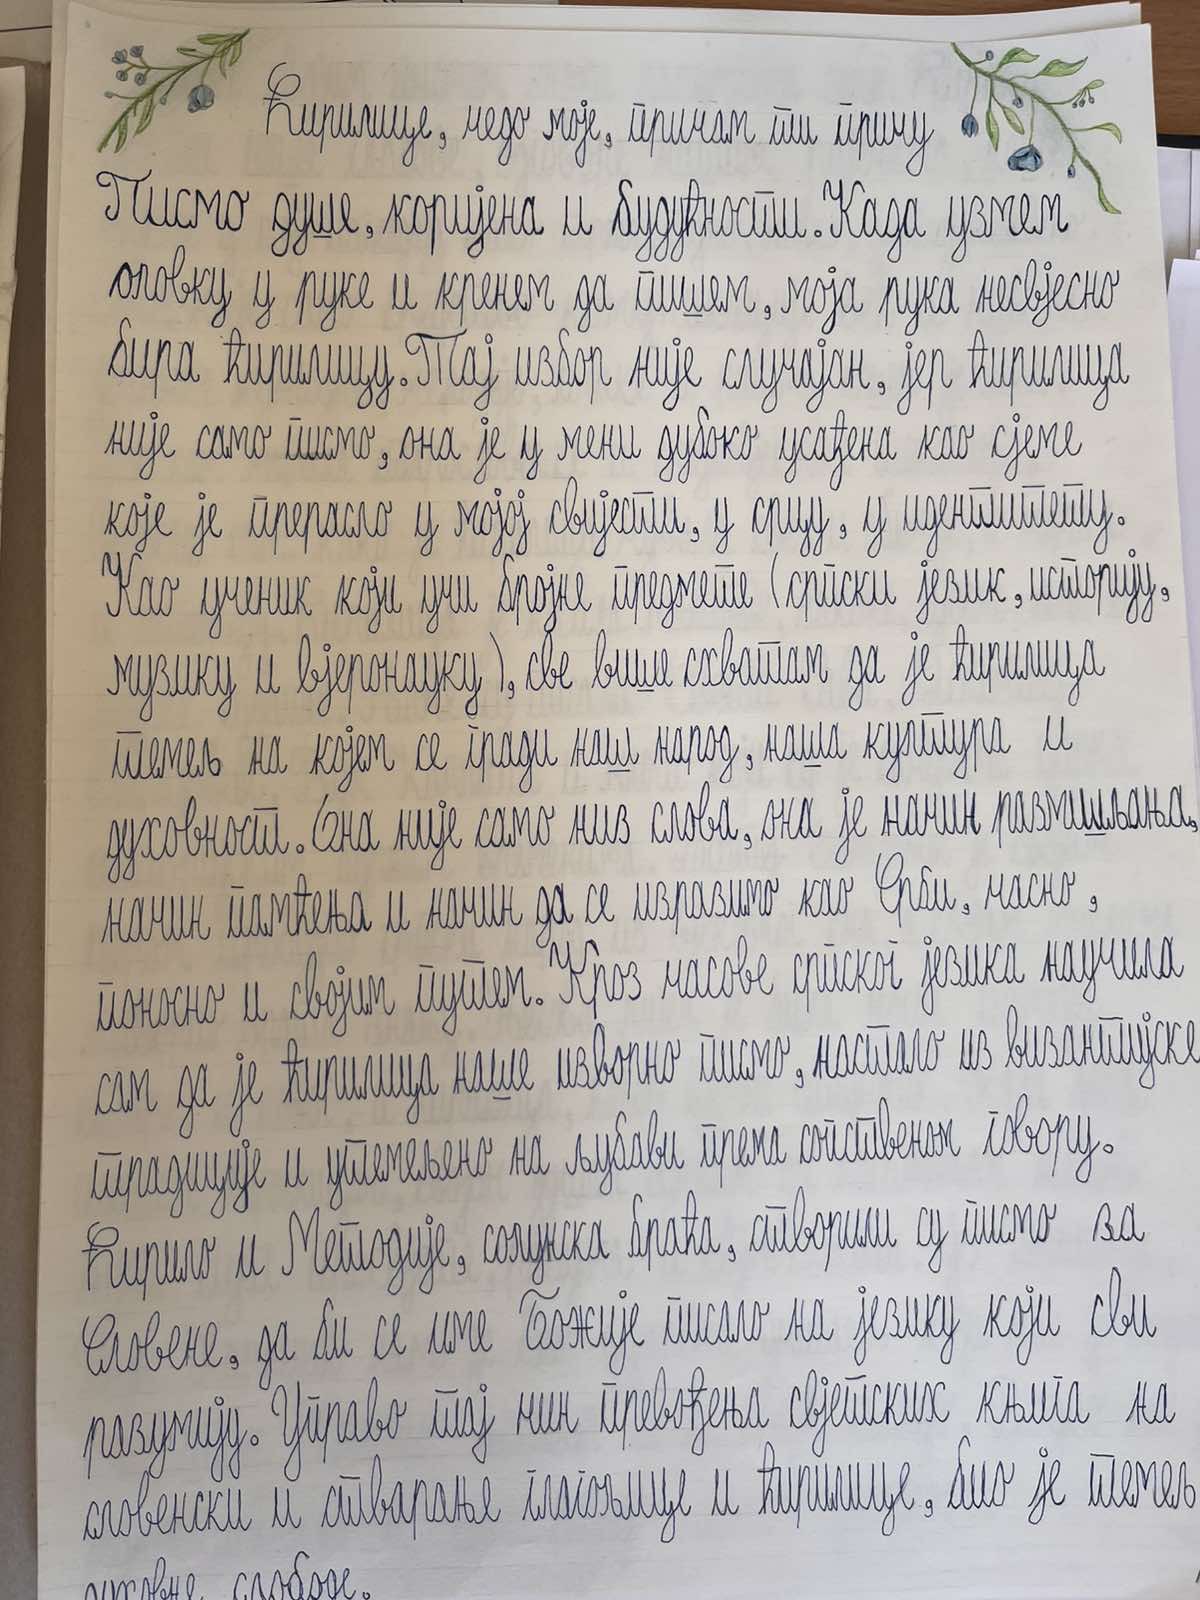 Ћирилице, чедо моје, причам ти причу
Писмо душе, коријена и будућности. Када узмем
оловку у руке и кренем да пишем, моја рука несвјесно
бира ћирилицу. Тај избор није случајан, јер ћирилица
није само писмо, она је у мени дубоко усађена као сјеме
које је прерасло у мојој свијести, у срцу, у идентитету.
Као ученик који учи бројне предмете (српски језик, историју,
музику и вјеронауку), све више схватам да је ћирилица
темељ на којем се гради наш народ, наша култура и
духовност. Она није само низ слова, она је начин размишљања,
начин памћења и начин да се изразимо као Срби, часно,
поносно и својим путем. Кроз часове српског језика научила
сам да је ћирилица наше изворно писмо, настало из византијске
традиције и утемељено на љубави према сопственом говору.
Ћирило и Методије, солунска браћа, створили су писмо за
Словене, да би се име Божије писало на језику који сви
разумију. Управо тај чин превођења свјетских књига на
словенски и стварање глагољице и ћирилице, био је темељ
духовне слободе.